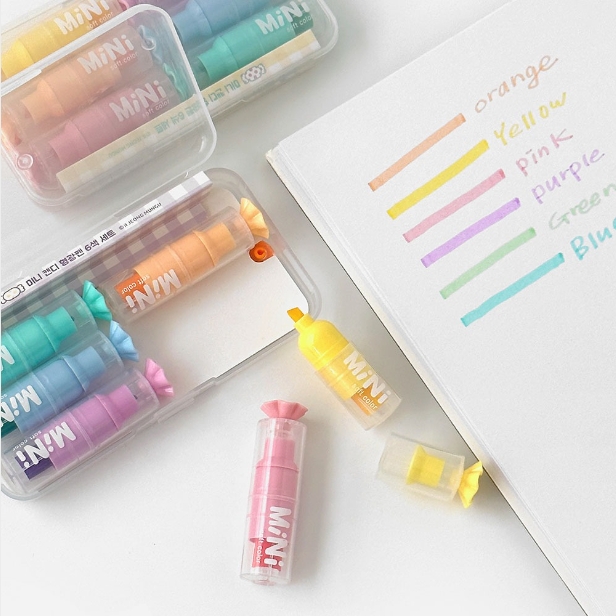 MiNi
soft color
MiNi
soft color
MiNi
soft color
MiNi
soft color
orange
Yellow
pink
purple
Green
Blue
미니 캔디 형광펜 6색 세트
MiNi
soft color
MiNi
MiNi
MiNi
soft color
MiNi
soft color
MiNi
soft color